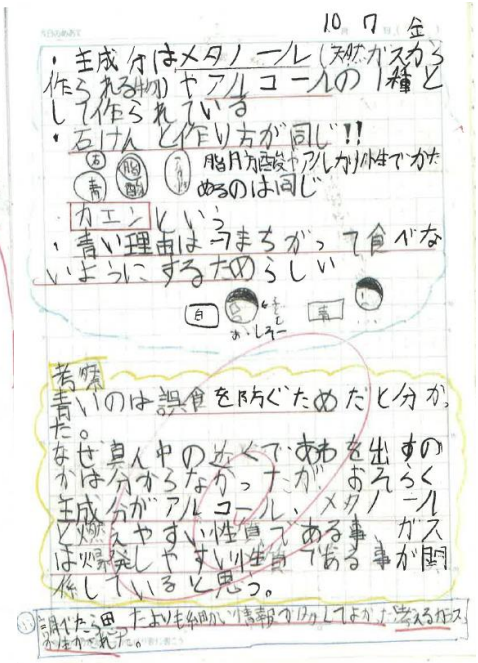 10 7 金
・主成分はメタノール(天然ガスから
作られる物)やアルコールの1種と
して作られている
・石けんと作り方が同じ!!
脂肪酸やアルカリ性でかた
めるのは同じ
カエンという
・青い理由はまちがって食べな
いようにするためらしい
白 青
お・しろー
考察
青いのは誤食を防ぐためだと分かっ
た。
なぜ真ん中の近くであわを出すの
かは分からなかったが おそらく
主成分がアルコール、メタノール
と燃えやすい性質である事、ガス
は爆発しやすい性質である事が関
係していると思う。
調べたら思ったよりも細かい情報が